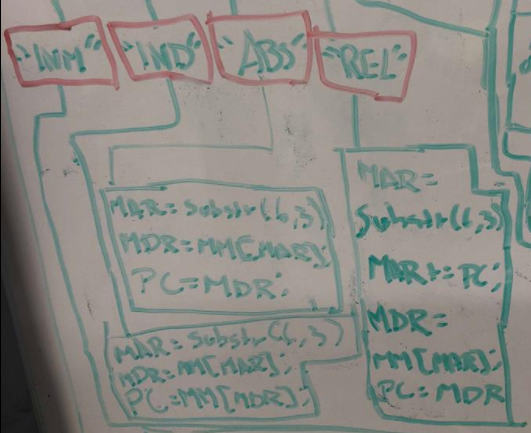 "INM" "IND" "ABS" "REL"
MAR= Substr(6,3)
MDR=MM[MAR];
PC=MDR;
MAR=Substr(6,3)
MDR=MM[MAR];
PC=MM[MDR];
MAR=
Substr(6,3)
MAR+=PC;
MDR=
MM[MAR];
PC=MDR